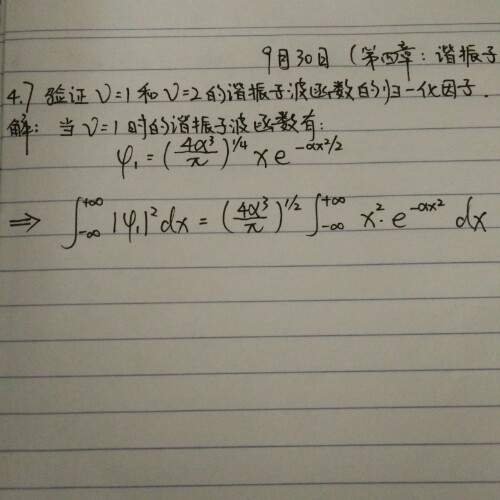 9月30日 (第四章：谐振子
4.7 验证 ν=1 和 ν=2 的谐振子波函数的归一化因子.
解: 当 ν=1 时的谐振子波函数有:
φ₁ = (4α³/π)^1/4 x e^-αx²/2
⇒ ∫_-∞^+∞ |φ₁|² dx = (4α³/π)^1/2 ∫_-∞^+∞ x²· e^-αx² dx